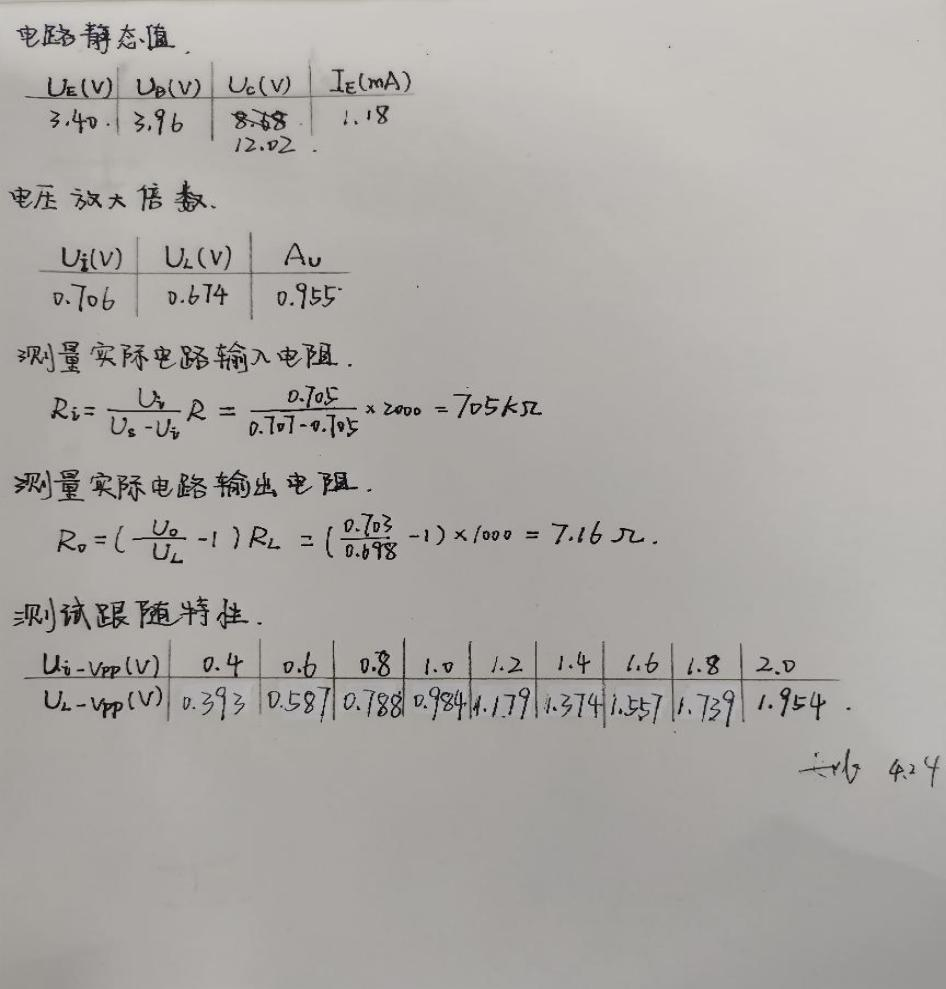 电路静态值.
UE(V) UB(V) UC(V) IE(mA)
3.40. 3.96 8.68 1.18
12.02.
电压放大倍数.
Ui(V) UL(V) Au
0.706 0.674 0.955
测量实际电路输入电阻.
Ri = Ui/(Us-Ui) R = 0.705/(0.707-0.705) × 2000 = 705kΩ
测量实际电路输出电阻.
Ro = (Uo/UL -1) RL = (0.703/0.698 -1) × 1000 = 7.16 Ω.
测试跟随特性.
Ui-Vpp(V) 0.4 0.6 0.8 1.0 1.2 1.4 1.6 1.8 2.0
UL-Vpp(V) 0.393 0.587 0.788 0.984 1.179 1.374 1.557 1.739 1.954.
4.24